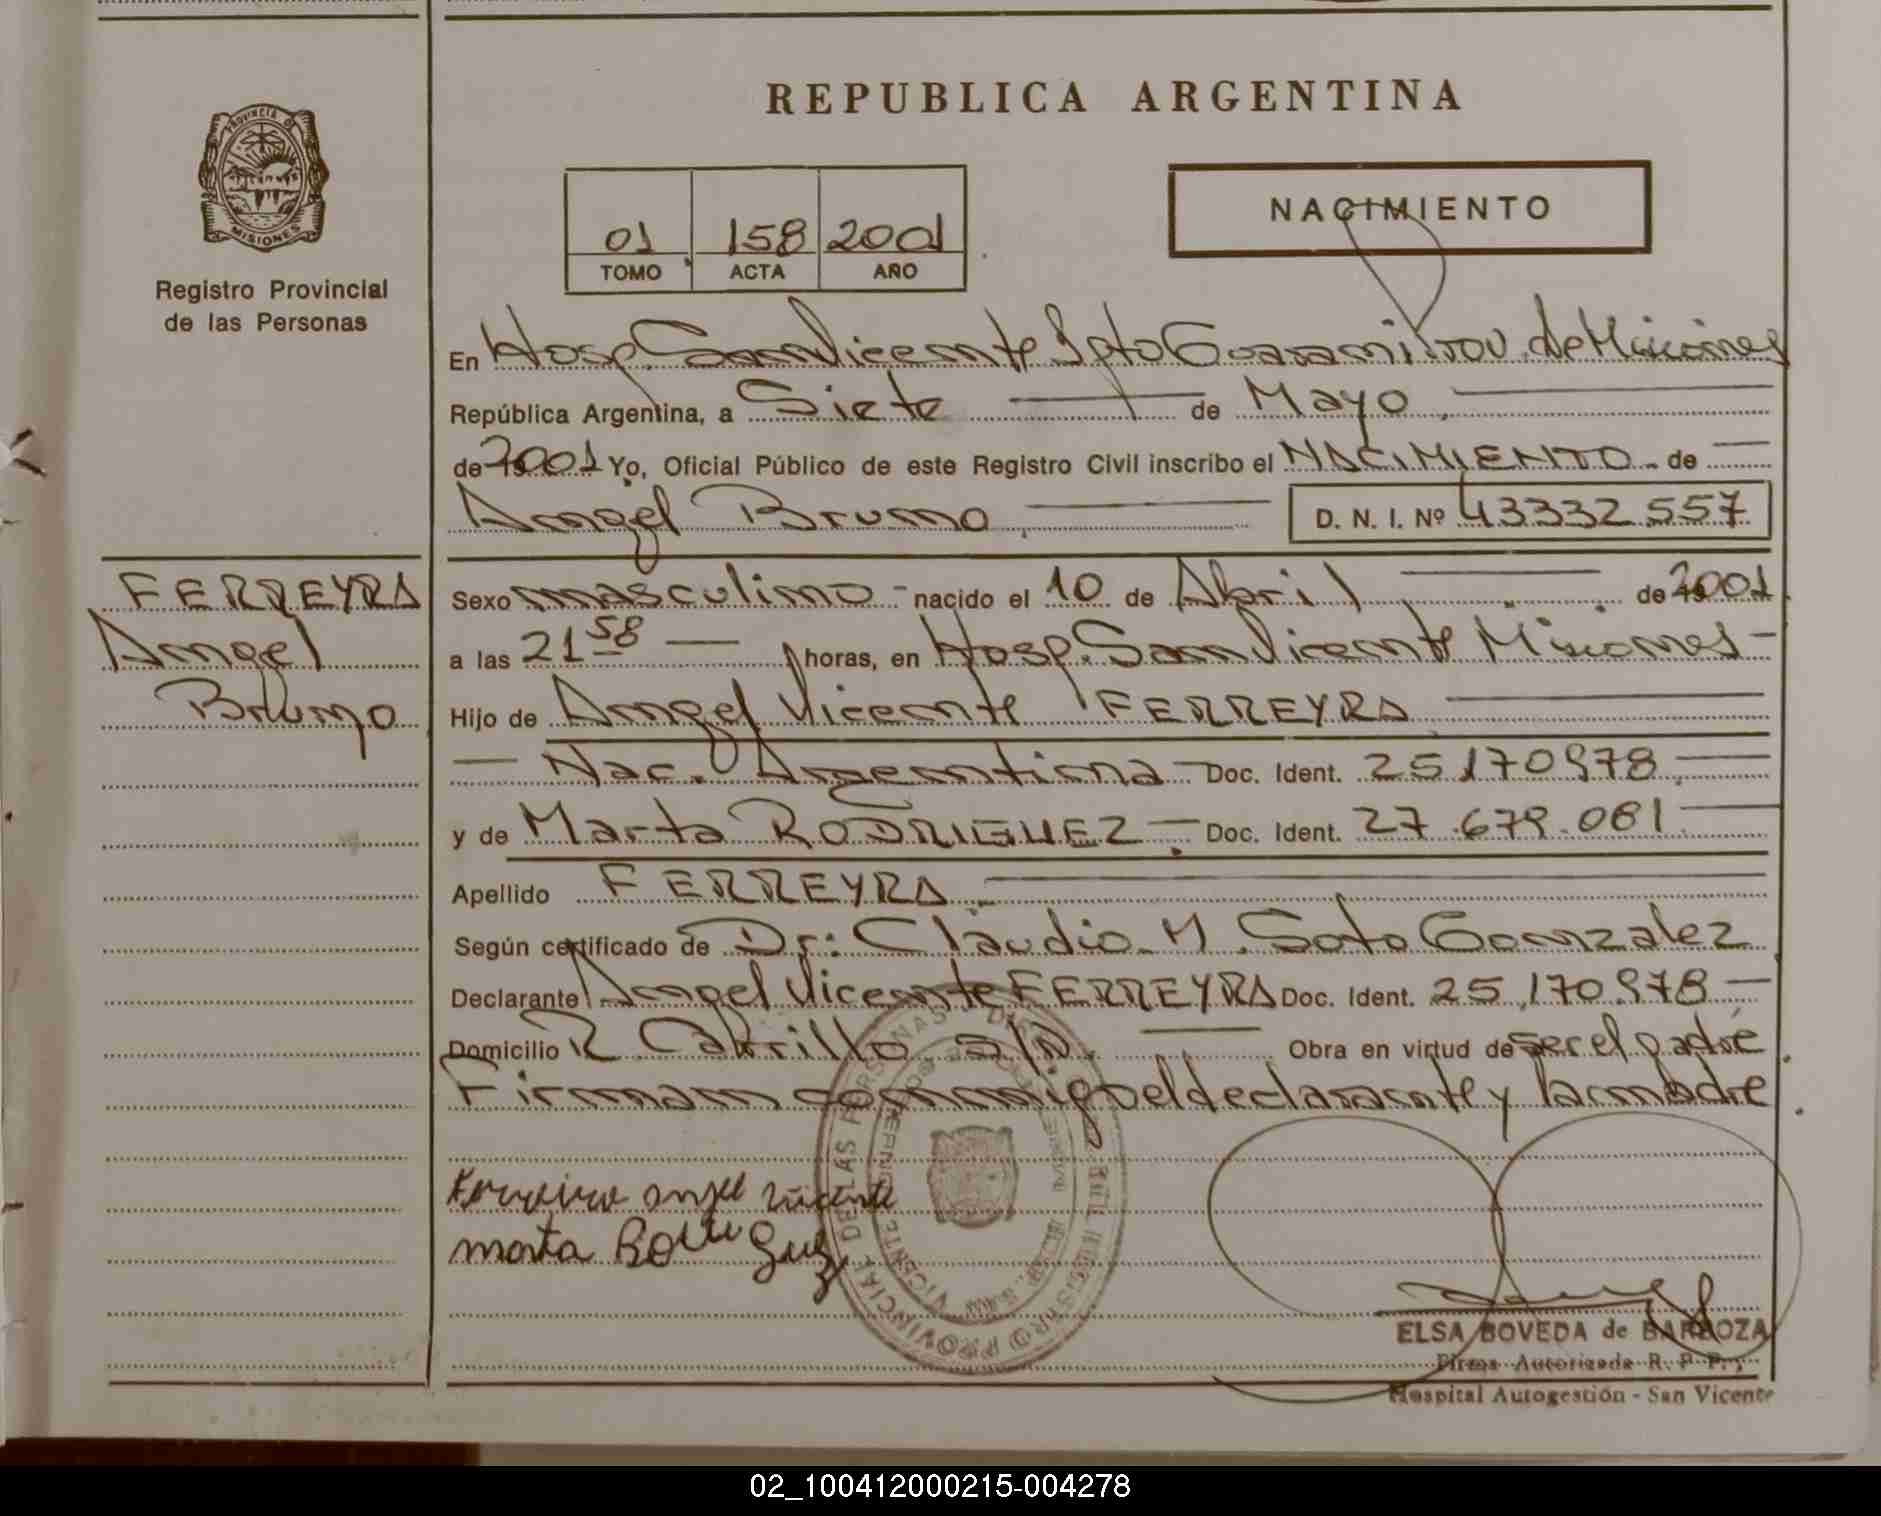 REPUBLICA ARGENTINA
PROVINCIA DE
MISIONES
Registro Provincial
de las Personas
01 158 2001
TOMO ACTA AÑO
NACIMIENTO
En Hosp. San Vicente Dpto Guarani Prov. de Misiones
República Argentina, a Siete de Mayo
de 2001 Yo, Oficial Público de este Registro Civil inscribo el NACIMIENTO - de
Angel Bruno D. N. I. Nº 43332557
FERREYRA
Angel
Bruno
Sexo masculino - nacido el 10 de Abril de 2001
a las 21 58 horas, en Hosp. San Vicente Misiones -
Hijo de Angel Vicente FERREYRA
Nac. Argentina Doc. Ident. 25.170.978
y de Marta RODRIGUEZ - Doc. Ident. 27.679.081
Apellido FERREYRA
Según certificado de Dr: Claudio M. Soto Gonzalez
Declarante Angel Vicente FERREYRA Doc. Ident. 25.170.978
Domicilio R. Carrillo s/n. Obra en virtud de ser el padre
Firman conmigo el declarante y la madre
Ferreira angel vicente
marta Rodriguez
PROVINCIAL DE LAS PERSONAS
VICENTE
ELSA BOVEDA de BARBOZA
Firma Autorizada R. P. P.
Hospital Autogestión - San Vicente
02_100412000215-004278